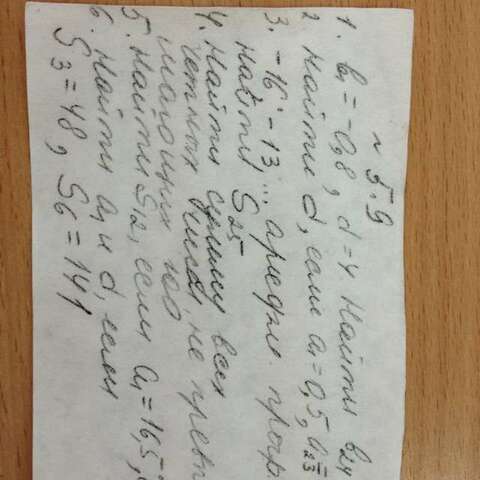 № 5.9
1. b₁ = -0,8, d = 4 Найти b₂₄
2 Найти d, если a₁ = 0,5, a₂₃ =
3. -16; -13 ... арифм. прогр
Найти S₂₅
4. Найти сумму всех
четных чисел, не превы
шающих 160
5. Найти S₁₂, если a₁ = 16,5,
6. Найти a₁ и d, если
S₃ = 48, S₆ = 141